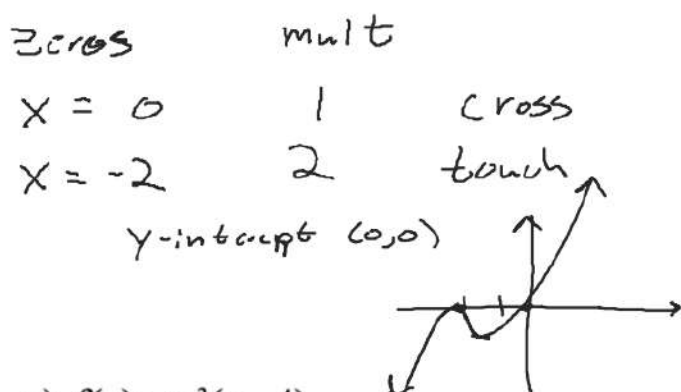 zeros mult
x = 0 1 cross
x = -2 2 touch
y-intercept (0,0)